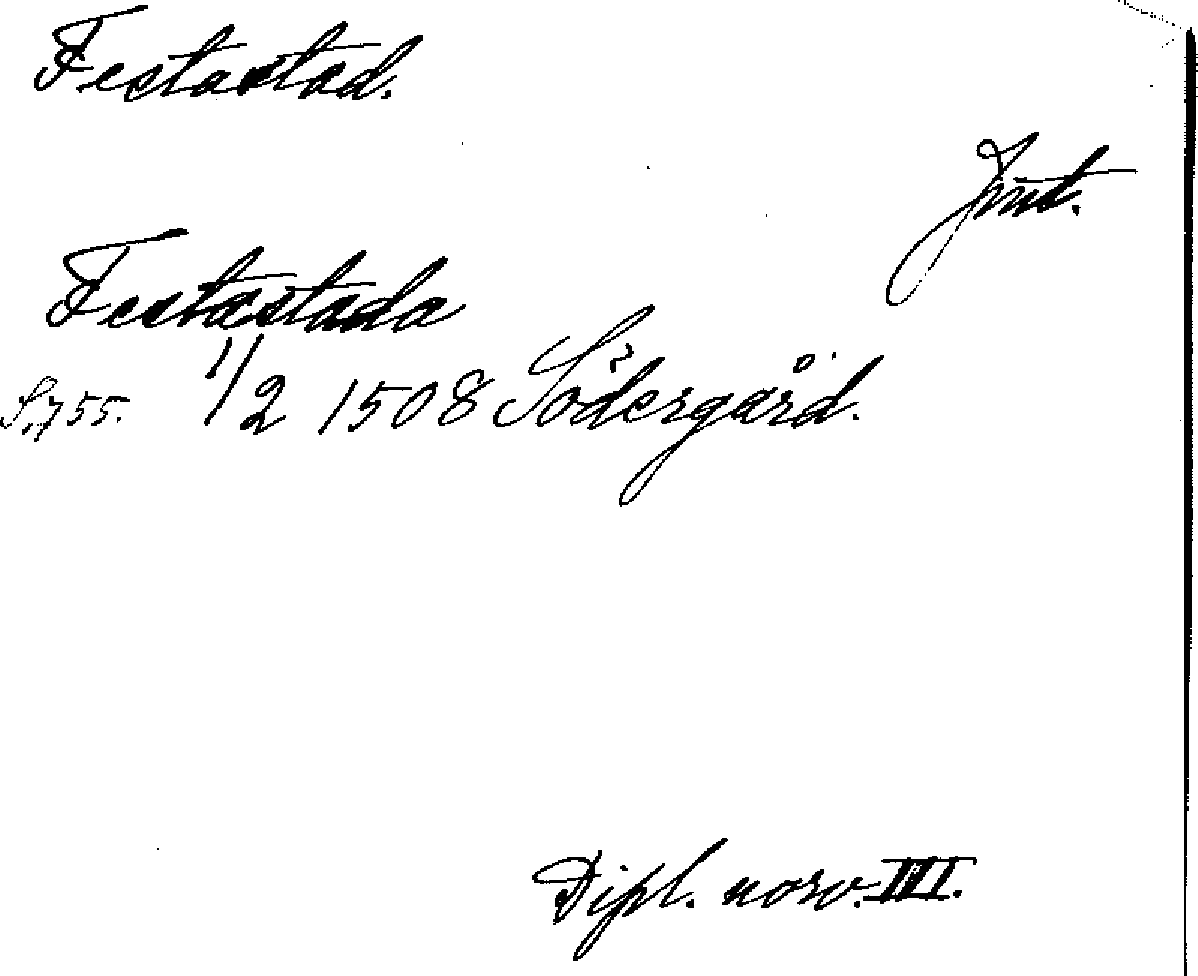 Festastad.
Jmt.
Festæstada
S. 755. 1/2 1508 Södergård.
Dipl. norv. III.